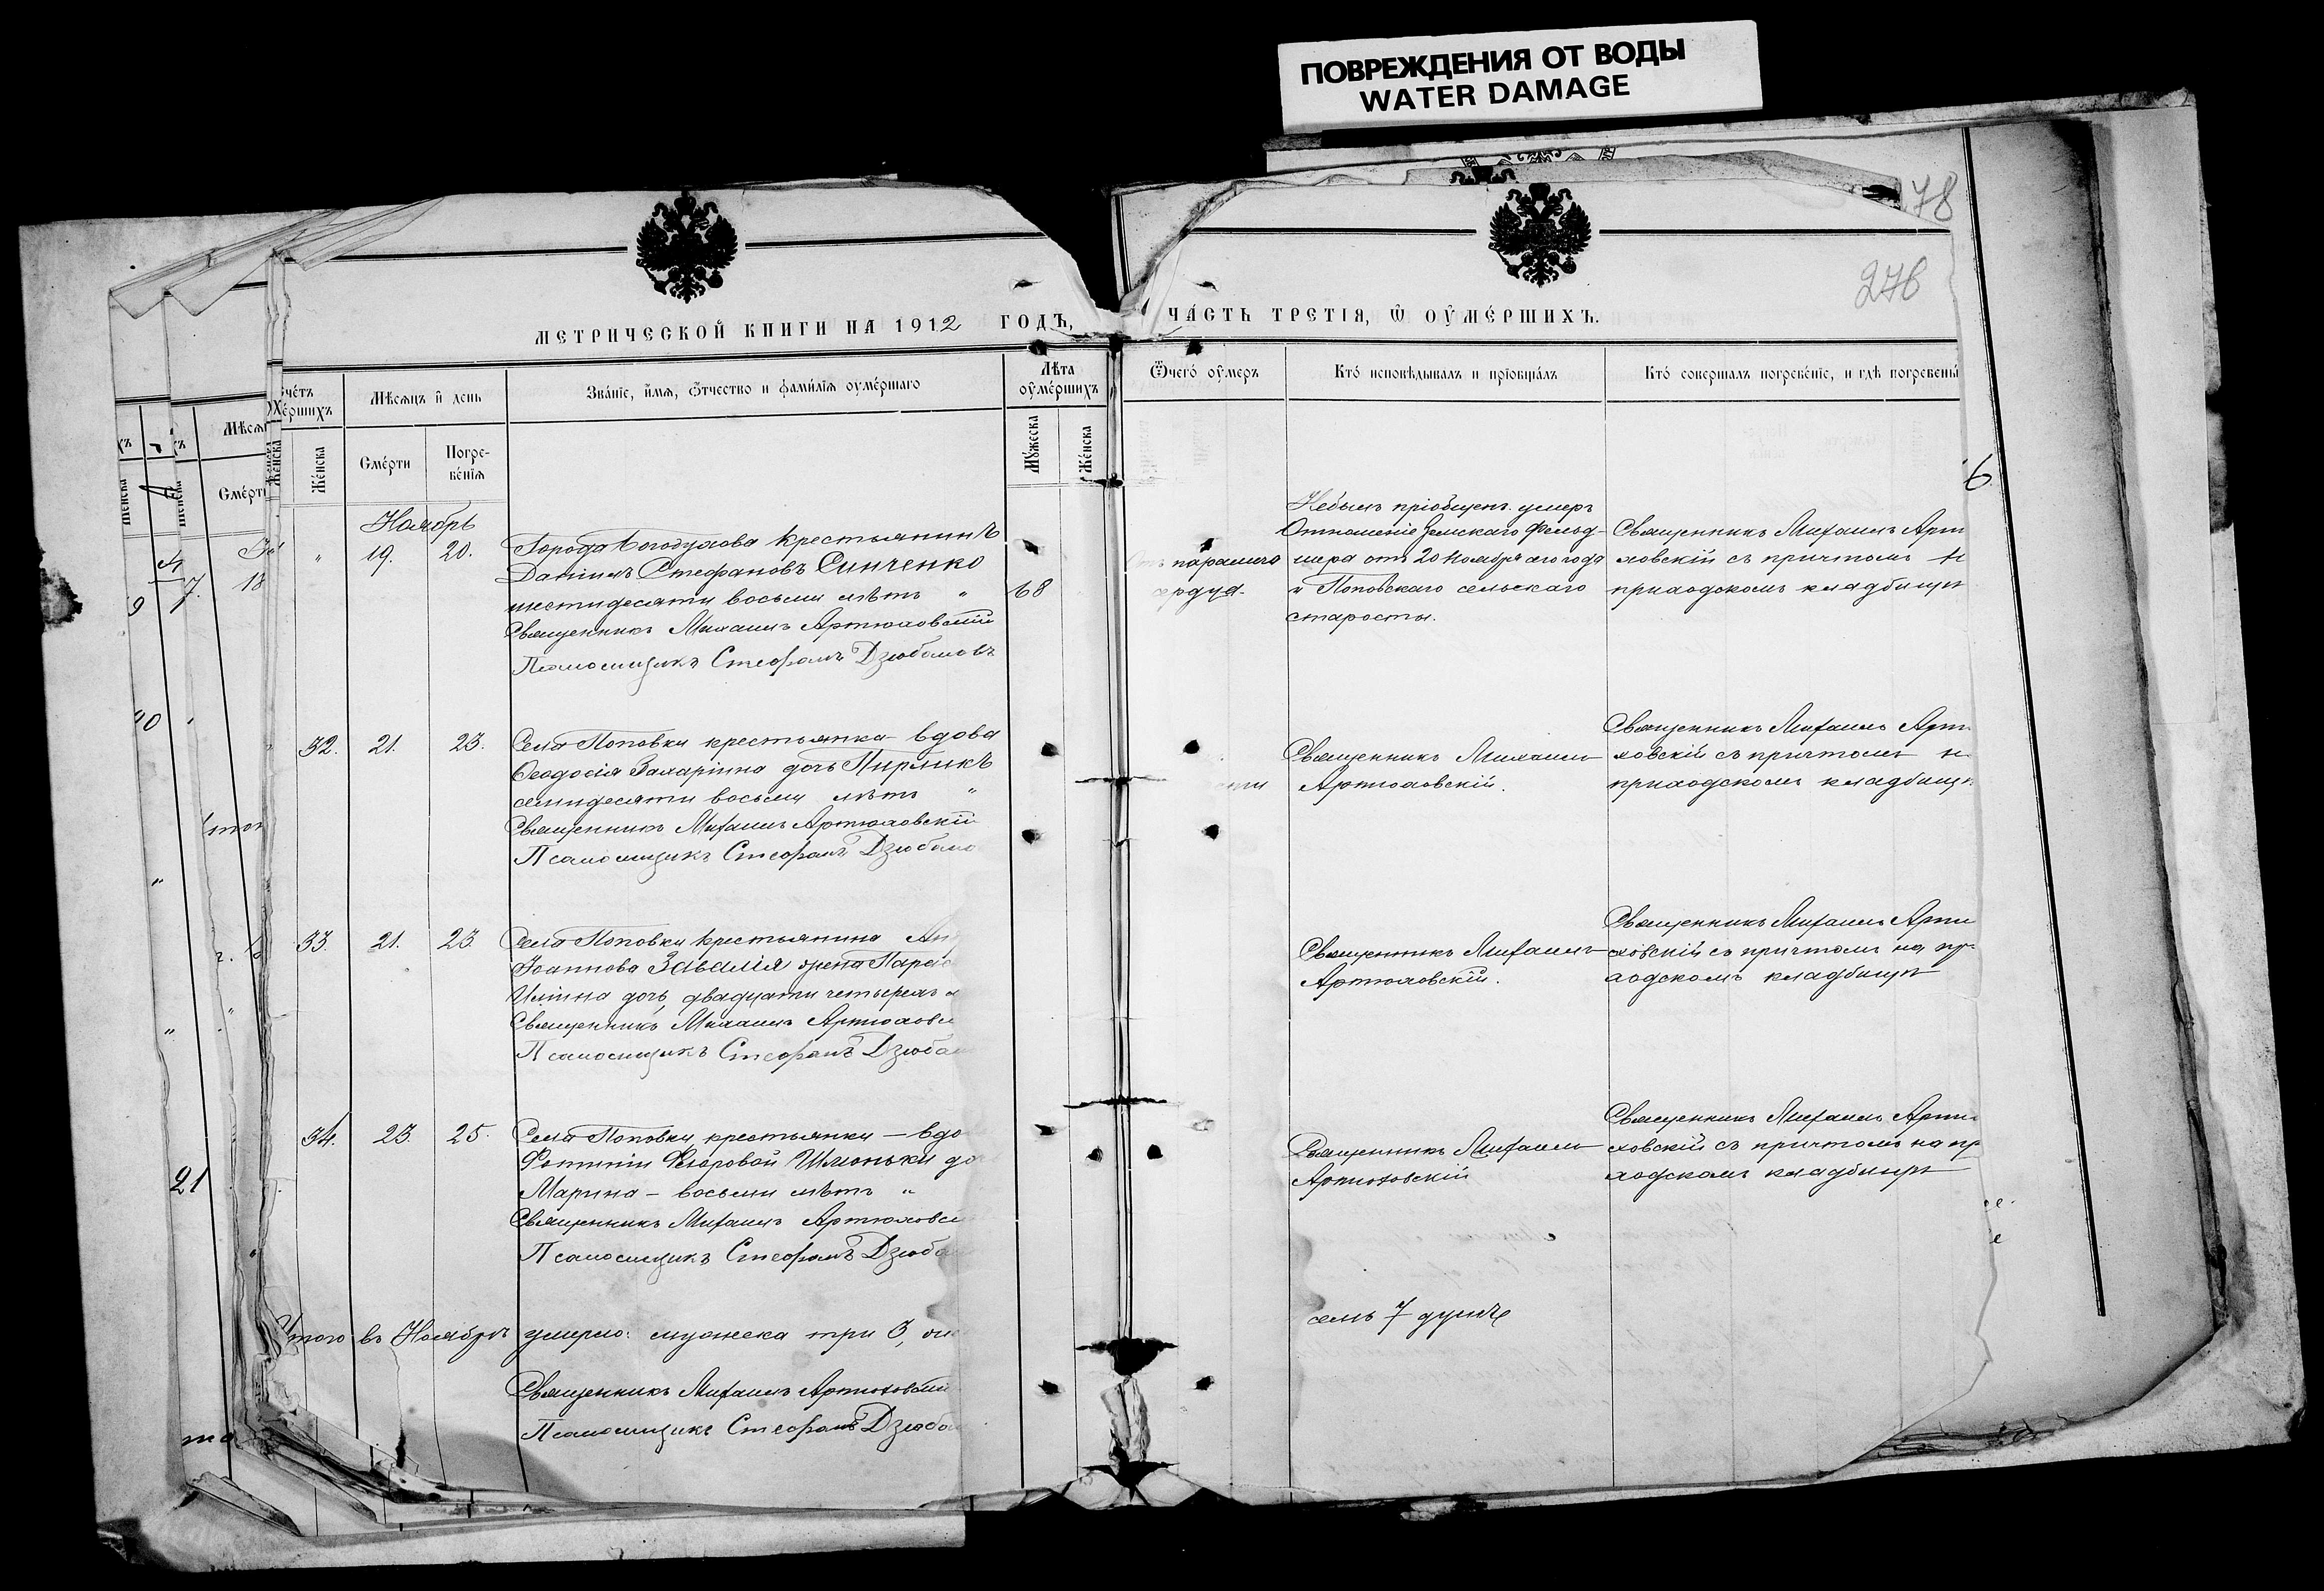 ПОВРЕЖДЕНИЯ ОТ ВОДЫ
WATER DAMAGE
78
276
МЕТРИЧЕСКОЙ КНИГИ НА 1912 ГОДЪ,
ЧАСТЬ ТРЕТІЯ, Ѿ ОУМЕРШИХЪ.
Мѣсяцъ и день
Званіе, имя, отчество и фамилія оумершаго
Лѣта оумершихъ
Ѿчего оумеръ
Кто исповѣдывалъ и пріобщалъ
Кто совершалъ погребеніе, и гдѣ погребены
Женска
Смерти
Погребенія
Мужеска
Женска
Ноябрь
" 19. 20.
Города Богодухова крестьянинъ
Даніилъ Стефановъ Синченко
шестидесяти восьми лѣтъ "
68
Священникъ Михаилъ Артюховскій
Псаломщикъ Стефанъ Дзюбановъ
порашиго
сердца.
Небылъ пріобщенъ умеръ
Отношеніе Земскаго Фельд-
шера отъ 20 Ноября сего года
и Поповскаго сельскаго
старосты.
Священникъ Михаилъ Артю
ховскій съ причтомъ н
приходскомъ кладбищѣ
32. 21. 23.
Села Поповки крестьянка - вдова
Феодосія Захаріина дочь Пирликъ
семидесяти восьми лѣтъ "
Священникъ Михаилъ Артюховскій
Псаломщикъ Стефанъ Дзюбано
сти
Священникъ Михаилъ
Артюховскій.
Священникъ Михаилъ Артю
ховскій съ причтомъ н
приходскомъ кладбищѣ
33. 21. 23.
Села Поповки крестьянина
Іоаннова Завалія жена Парас
Иліина дочь, двадцати четырехъ л
Священникъ Михаилъ Артюховс
Псаломщикъ Стефанъ Дзюбан
Священникъ Михаилъ
Артюховскій.
Священникъ Михаилъ Артю
ховскій съ причтомъ на пр
ходскомъ кладбищѣ
34. 23. 25.
Села Поповки, крестьянки — вдо
Фотиніи Федоровой Шмоньки до
Марина - восьми лѣтъ "
Священникъ Михаилъ Артюховс
Псаломщикъ Стефанъ Дзюба
Священникъ Михаилъ
Артюховскій
Священникъ Михаилъ Артю
ховскій съ причтомъ на пр
ходскомъ кладбищѣ
Итого въ Ноябрѣ умерло: мужеска три 3,
семь 7 душъ
Священникъ Михаилъ Артюховскій
Псаломщикъ Стефанъ Дзюба